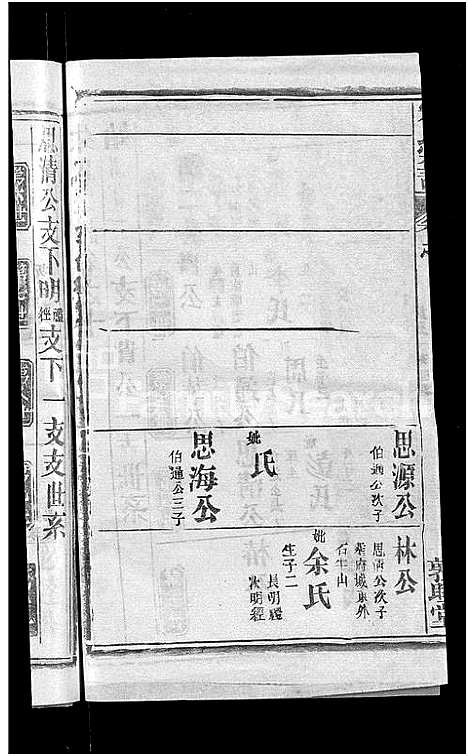 思源公
伯通公次子
妣 氏
思海公
伯通公三子
林公
思清公次子
葬府城東外
石牛山
妣余氏
生子二
長明禮
次明經
敦睦堂
思清公支下明禮經支下一支支世系